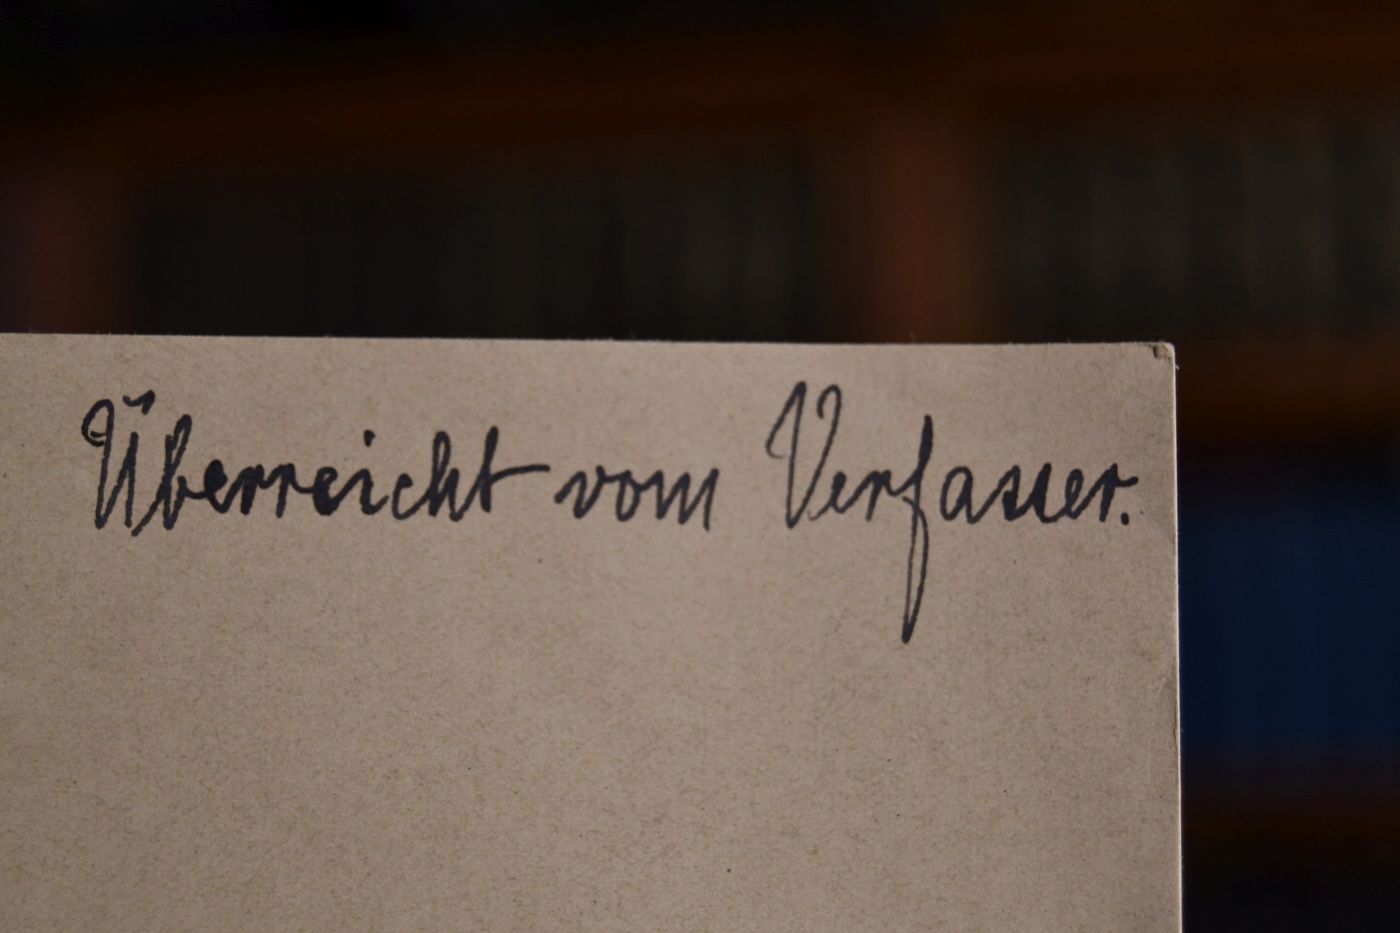 Überreicht vom Verfasser.